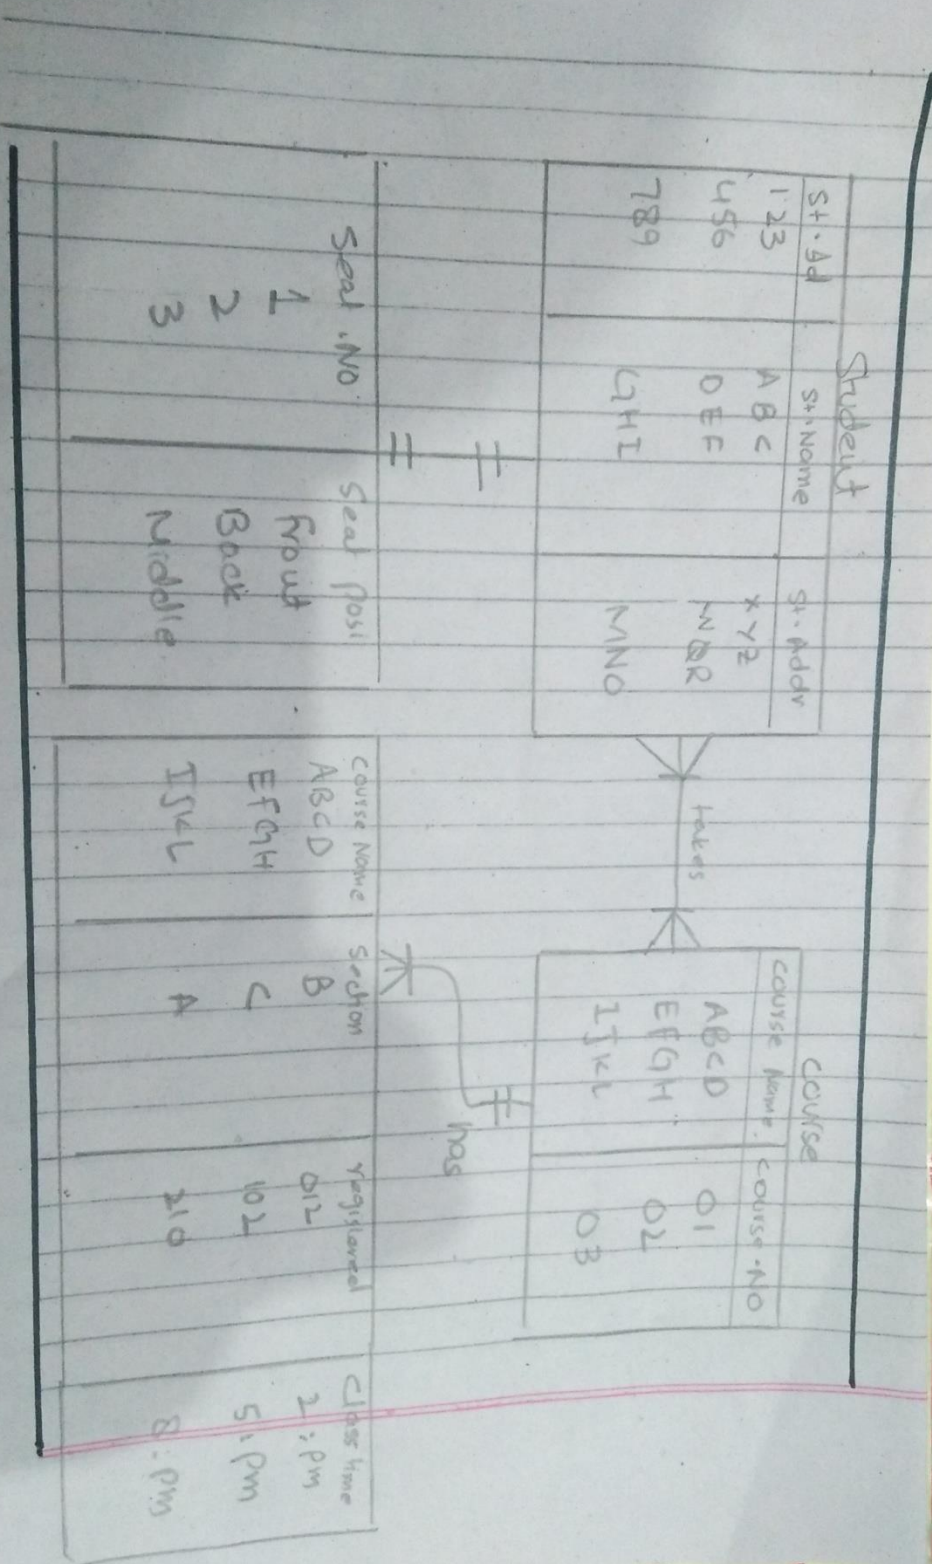 Student
St. Ad St. Name St. Addr
123 ABC XYZ
456 DEF
789 GHI MNO
takes
course
course Name. course. NO
ABCD 01
EFGH 02
IJKL 03
has
Seat. NO Seat Posi
1 front
2 Back
3 Middle
course Name Section registered Class time
ABCD B 012 2:pm
EFGH C 102 5:pm
IJKL A 210 8:pm